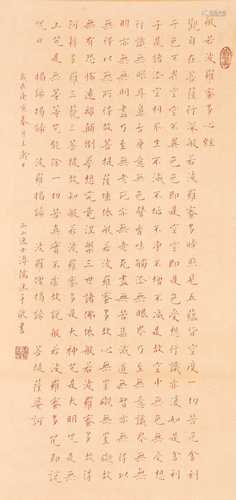 般若波羅蜜多心經
觀自在菩薩行深般若波羅蜜多時照見五蘊皆空度一切苦厄舍利
子色不異空空不異色色即是空空即是色受想行識亦復如是舍利
子是諸法空相不生不滅不垢不淨不增不減是故空中無色無受想
行識無眼耳鼻舌身意無色聲香味觸法無眼界乃至無意識界無無
明亦無無明盡乃至無老死亦無老死盡無苦集滅道無智亦無得
以無所得故菩提薩埵依般若波羅蜜多故心無罣礙無罣礙故無
有恐怖遠離顛倒夢想究竟涅槃三世諸佛依般若波羅蜜多故得
阿耨多羅三藐三菩提故知般若波羅蜜多是大神咒是大明咒是無
上咒是無等等咒能除一切苦真實不虛故說般若波羅蜜多咒即說
咒曰 揭諦揭諦 波羅揭諦 波羅僧揭諦 菩提薩婆訶
西山逸士溥儒沐手敬書